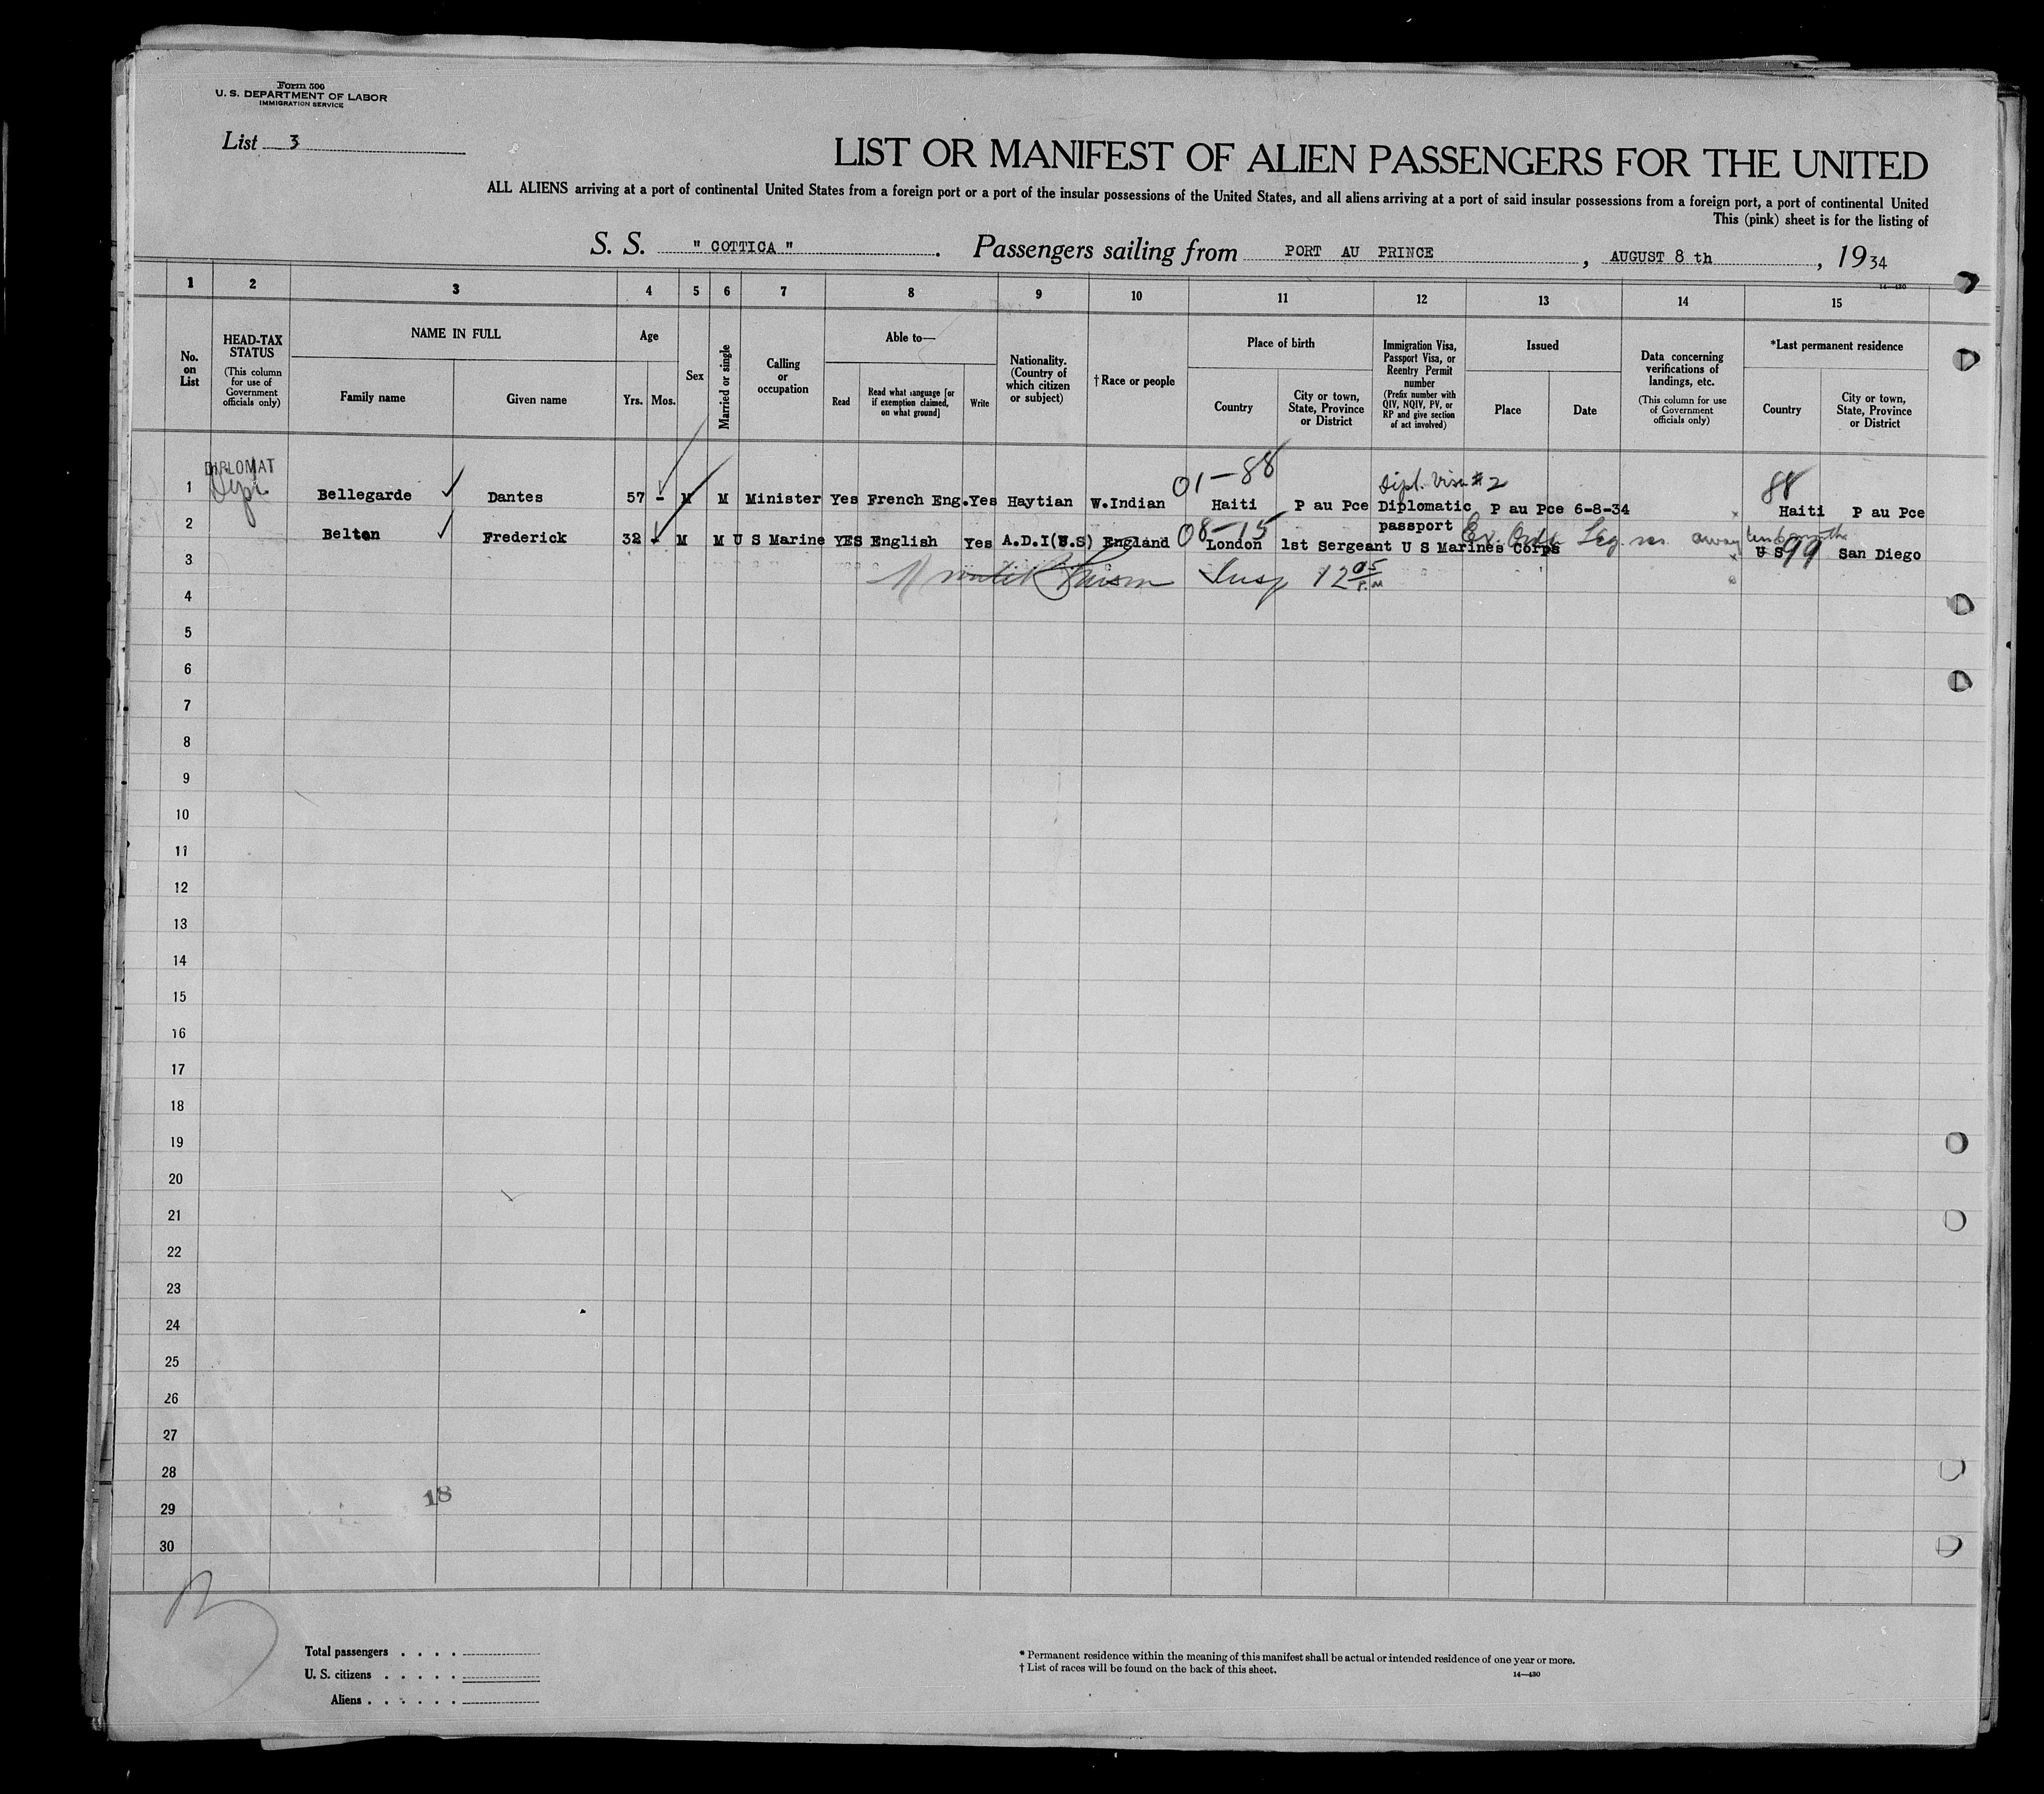 Form 500
U. S. DEPARTMENT OF LABOR
IMMIGRATION SERVICE
List 3
LIST OR MANIFEST OF ALIEN PASSENGERS FOR THE UNITED
ALL ALIENS arriving at a port of continental United States from a foreign port or a port of the insular possessions of the United States, and all aliens arriving at a port of said insular possessions from a foreign port, a port of continental United
This (pink) sheet is for the listing of
S. S. " COTTICA ". Passengers sailing from PORT AU PRINCE, AUGUST 8 th, 1934
14—430
1 2 3 4 5 6 7 8 9 10 11 12 13 14 15
No. on List
HEAD-TAX STATUS (This column for use of Government officials only)
NAME IN FULL
Family name
Given name
Age
Yrs. Mos.
Sex
Married or single
Calling or occupation
Able to—
Read
Read what language [or if exemption claimed, on what ground]
Write
Nationality. (Country of which citizen or subject)
† Race or people
Place of birth
Country
City or town, State, Province or District
Immigration Visa, Passport Visa, or Reentry Permit number (Prefix number with QIV, NQIV, PV, or RP and give section of act involved)
Issued
Place
Date
Data concerning verifications of landings, etc. (This column for use of Government officials only)
*Last permanent residence
Country
City or town, State, Province or District
DIPLOMAT
01-88 Dipl. Visa #2 88
1 Dipl. Bellegarde Dantes 57 - M M Minister Yes French Eng. Yes Haytian W.Indian Haiti P au Pce Diplomatic passport P au Pce 6-8-34 Haiti P au Pce
08-15
2 Belton Frederick 32 - M M U S Marine YES English Yes A.D.I(U.S) England London 1st Sergeant U S Marines Corps U S 99 San Diego
3 Insp 12 05 P.M
4
5
6
7
8
9
10
11
12
13
14
15
16
17
18
19
20
21
22
23
24
25
26
27
28
29
30
18
Total passengers . . . .
U. S. citizens . . . . .
Aliens . . . . . .
* Permanent residence within the meaning of this manifest shall be actual or intended residence of one year or more.
† List of races will be found on the back of this sheet.
14—430